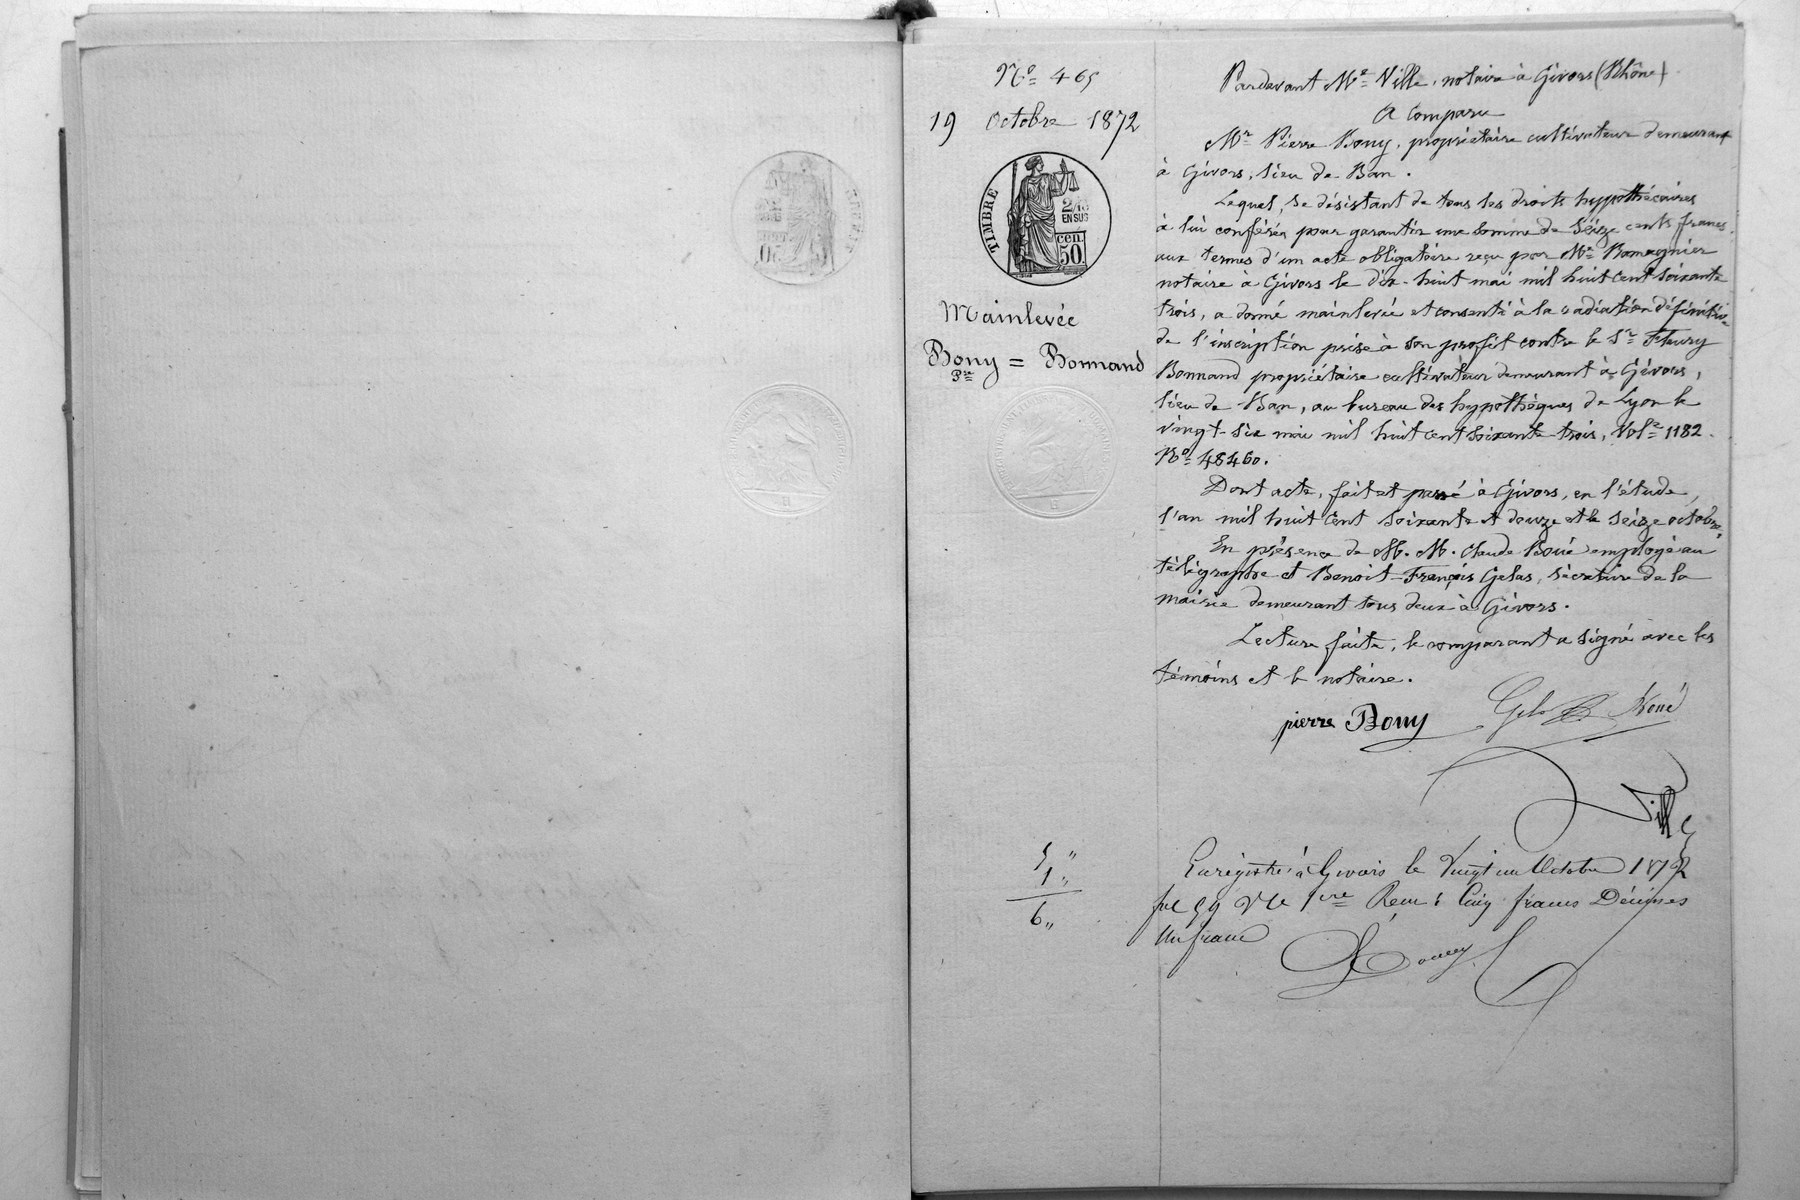 Nº 465
19 Octobre 1872
TIMBRE
2/10
EN SUS
50 cen.
Mainlevée
Bony = Bonnand
Pre
Pardevant Me Ville, notaire à Givors (Rhône)
A Comparu
Mr Pierre Bony, propriétaire cultivateur demeurant
à Givors, lieu de Ban.
Lequel, se désistant de tous les droits hypothécaires
à lui conférés pour garantir une somme de Seize cents francs
aux termes d'un acte obligatoire reçu par Me
notaire à Givors le dix-huit mai mil huit cent soixante
trois, a donné mainlevée et consenti à la radiation définitive
de l'inscription prise à son profit contre le Sr Fleury
Bonnand propriétaire cultivateur demeurant à Givors,
lieu de Ban, au bureau des hypothèques de Lyon le
vingt-six mai mil huit cent soixante-trois, Vole 1182.
Nº 48460.
Dont acte, fait et passé à Givors, en l'étude,
l'an mil huit cent soixante et douze et le seize octobre,
En présence de M. M. Claude Boué employé au
télégraphe et Benoit-François Gelas, sécretaire de la
mairie demeurant tous deux à Givors.
Lecture faite, le comparant a signé avec les
témoins et le notaire.
pierre Bony Gelas B. Boué
Ville
5 "
1 "
6 "
Enregistré à Givors le Vingt un Octobre 1872
fol 59 Vo Ce 1ere Reçu: Cinq francs Décimes
Un franc